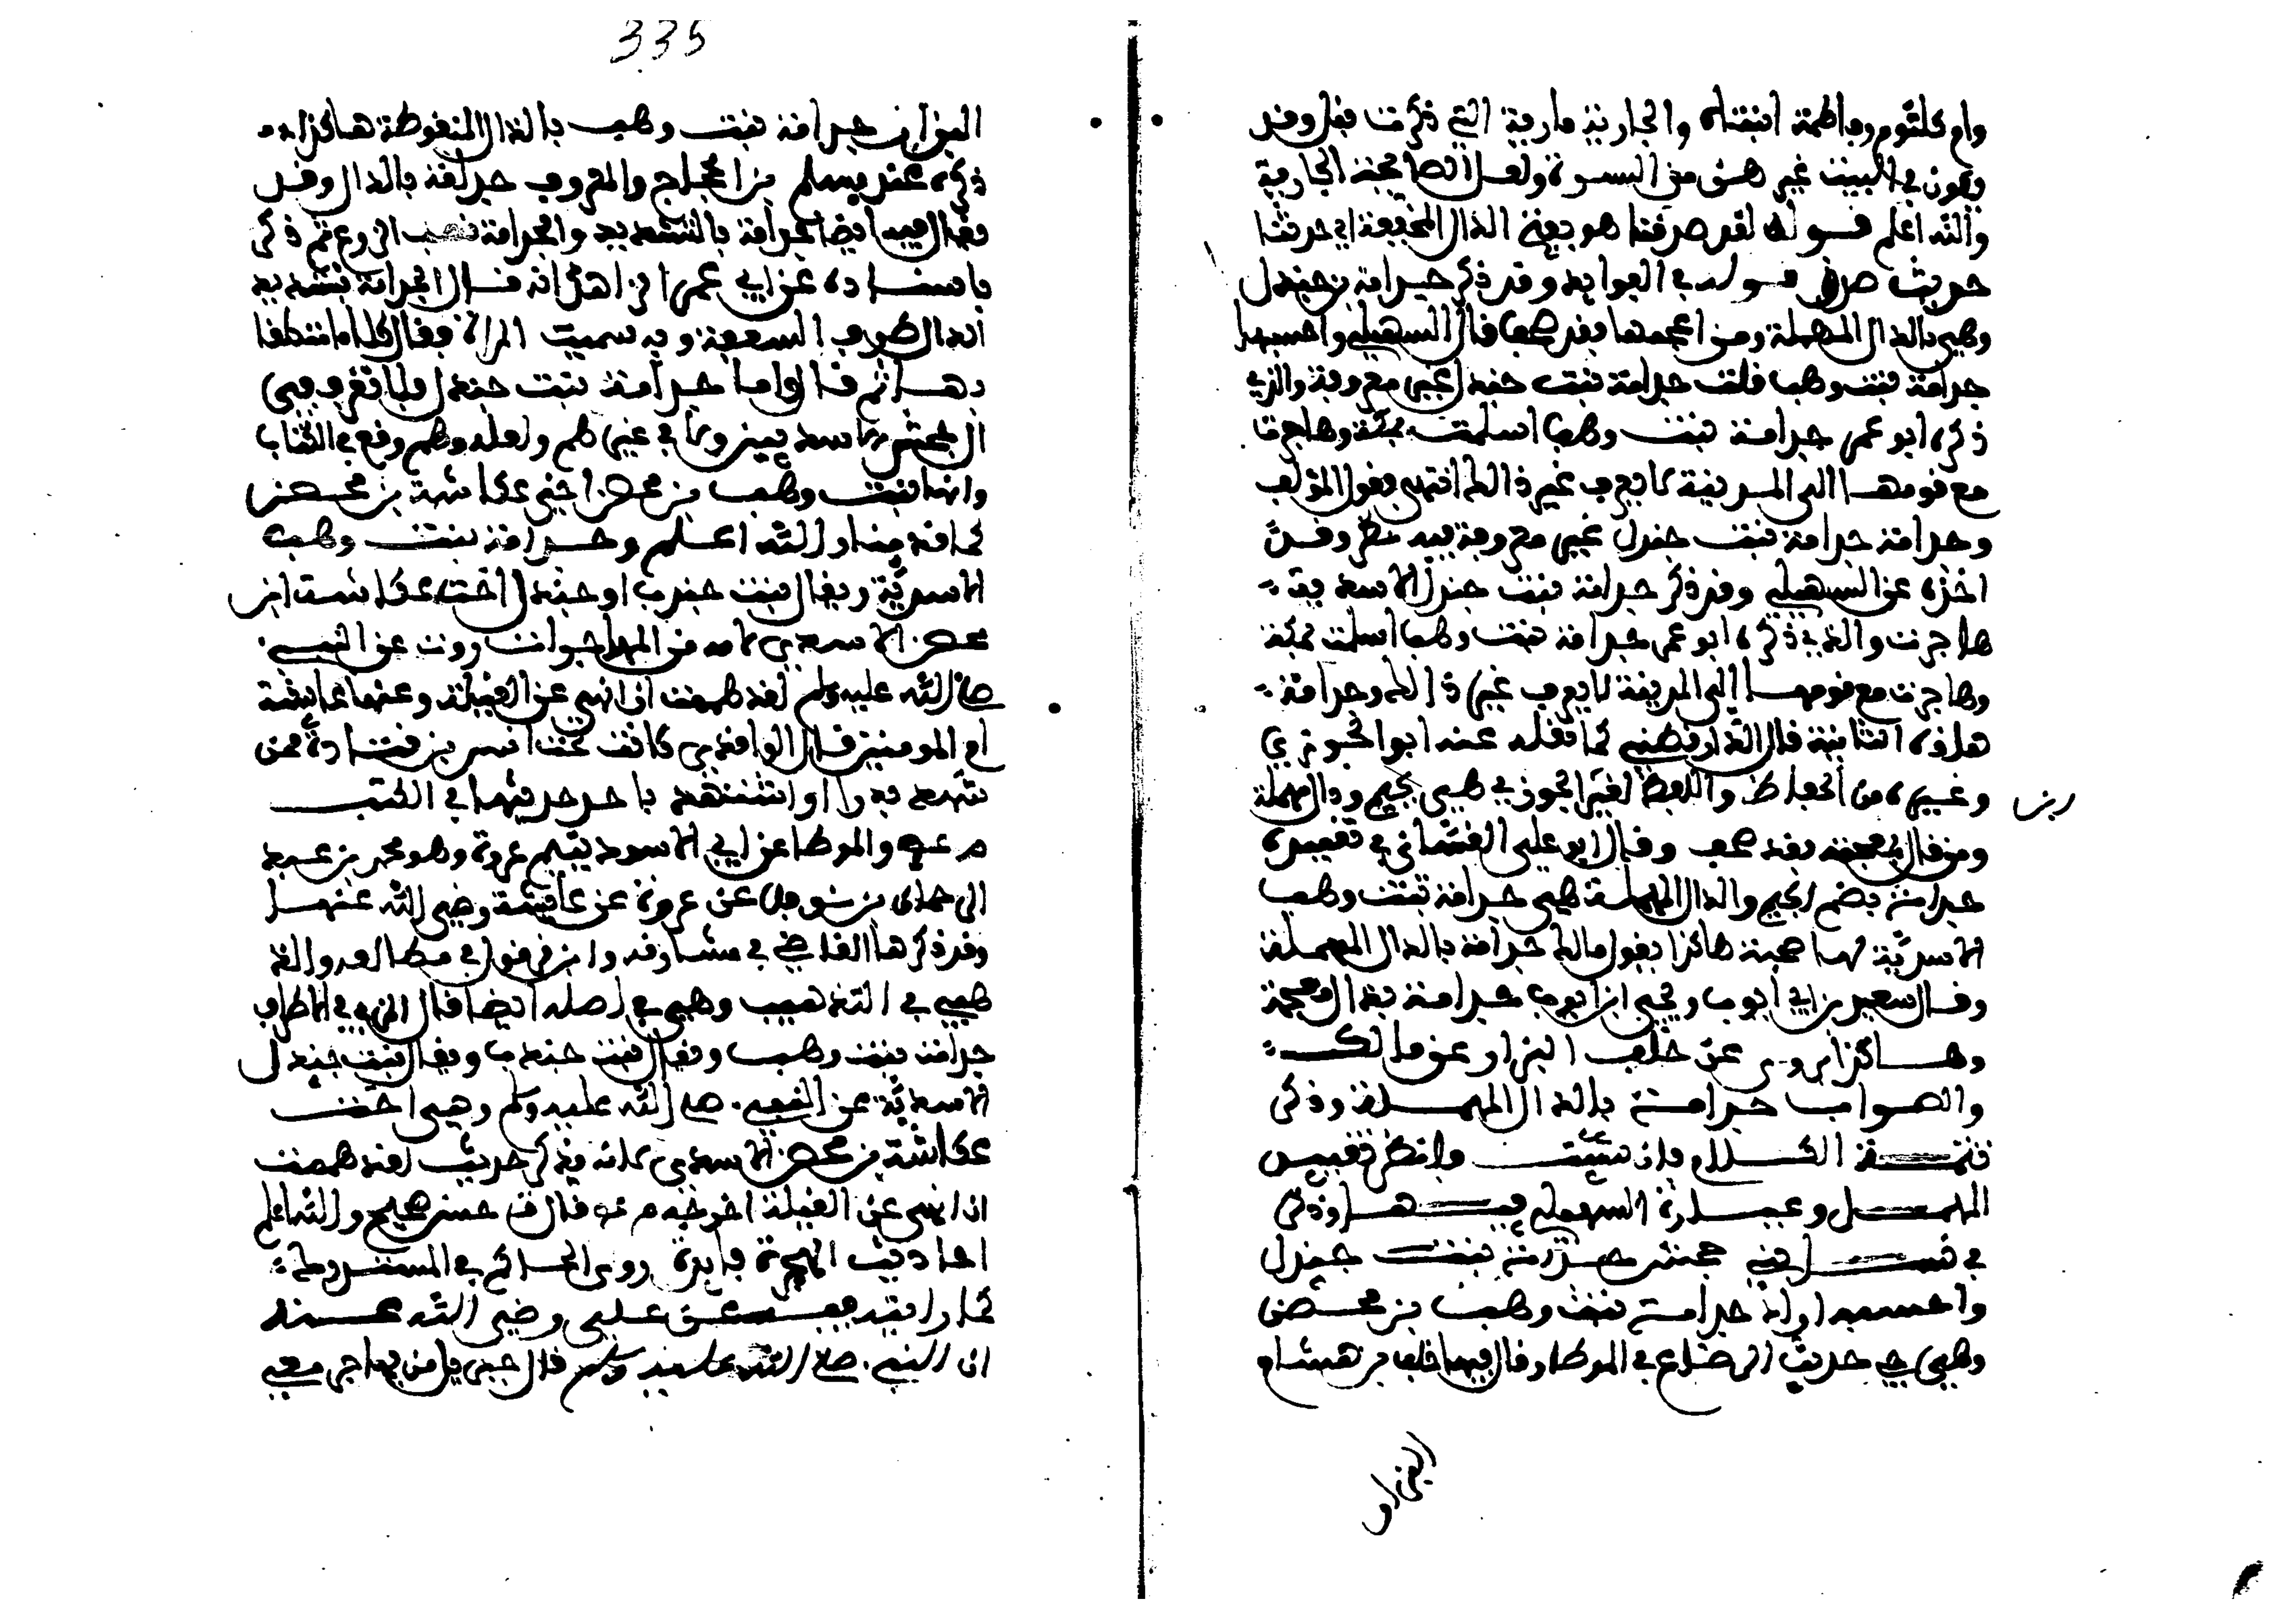 وام كلثوم وفاطمة ابنتاه والجارية مارية التي ذكرت قبل وقد
يكون في البيت غير هن من النسوة ولعل الصائحة الجارية
والله اعلم قوله لقد صدقتنا هو بفتح الدال المخففة اي حدثتنا
حديث صدق قوله في الفوايد وقد ذكر جدامة بنت جندل
وهي بالدال المهملة ومن اعجمها فقد صحف قال السهيلي واحسبها
جدامة بنت وهب قلت جدامة بنت جندل غير معروفة والذي
ذكره ابو عمر جدامة بنت وهب اسلمت بمكة وهاجرت
مع قومها الى المدينة لا يعرف غير ذالك انتهى فقول المؤلف
وجدامة جدامة بنت جندل غير معروفة فيه نظر وقد
اخذه عن السهيلي وقد ذكر جدامة بنت جندل الاسدية
هاجرت والذي ذكره ابو عمر جدامة بنت وهب اسلمت بمكة
وهاجرت مع قومها الى المدينة لا يعرف غير ذالك وجدامة
هذه الثانية قال الدارقطني كما نقله عنه ابو الجوزي
وغيره من الحفاظ واللفظ لابن الجوزي هي بجيم ودال مهملة
ابن
ومن قال بمعجمة فقد صحف وقال ابو علي الغساني في تقييده
جدامة بضم الجيم والدال المهملة هي جدامة بنت وهب
الاسدية لها صحبة هاكذا يقول مالك جدامة بالدال المهملة
وقال سعيد بن ابي ايوب ويحيى بن ايوب جذامة بذال معجمة
وهاكذا يروى عن خلف البزار عن مالك
والصواب جدامة بالدال المهملة وذكر
تتمة الكلام فان شيت وانظر تقييد
المهمل وعبارة السهيلي فيها وذكر
في نسا بني جحش جدامة بنت جندل
واحسبه اراد جدامة بنت وهب بن محصن
وهي في حديث الرضاع في الموطا وقال فيها خلف بن هشام
البزار
335
البزار جذامة بنت وهب بالذال المنقوطة هاكذا
ذكره عنه مسلم بن الحجاج والمعروف جدامة بالدال وقد
يقال فيه ايضا الجدامة بالتشديد والجدامة قصب الزرع ثم ذكر
باسناده عن ابي عمر الزاهد انه قال الجدامة بتشديد
الدال طرف السعفة وبه سميت المراة فقال كلاما متعلقا
بهذا ثم قال واما جدامة بنت جندل فلا تعرف في
ال جحش الاسديين ولا في غيرهم ولعله وهم وقع في الكتاب
وانها بنت وهب بن محصن اخي عكاشة بن محصن
كما قدمنا والله اعلم وجدامة بنت وهب
الاسدية ويقال بنت جندب او جندل اخت عكاشة ابن
محصن الاسدي لامه من المهاجرات روت عن النبي
صلى الله عليه وسلم لقد هممت ان انهى عن الغيلة وعنها عايشة
ام المومنين قال الواقدي كانت تحت انيس بن قتادة ممن
شهد بدرا واستشهد باحد حديثها في الكتب
م عه والموطا عن ابي الاسود يتيم عروة وهو محمد بن عبد
الرحمان بن نوفل عن عروة عن عايشة رضي الله عنها
وقد ذكرها القاضي في مشارقه وابن قرقول في مطالعه والذ
هبي في التذهيب وهي في اصله ايضا قال المزي في الاطراف
جدامة بنت وهب ويقال بنت جندب ويقال بنت جندل
الاسدية عن النبي صلى الله عليه وسلم وهي اخت
عكاشة بن محصن الاسدي لامه فذكر حديث لقد هممت
ان انهى عن الغيلة اخرجه م عه قال ت حسن صحيح والله اعلم
احاديث الهجرة فايدة روى الحاكم في المستدرك
كما رايته فيه عن علي رضي الله عنه
ان النبي صلى الله عليه وسلم قال جبريل من يهاجر معي